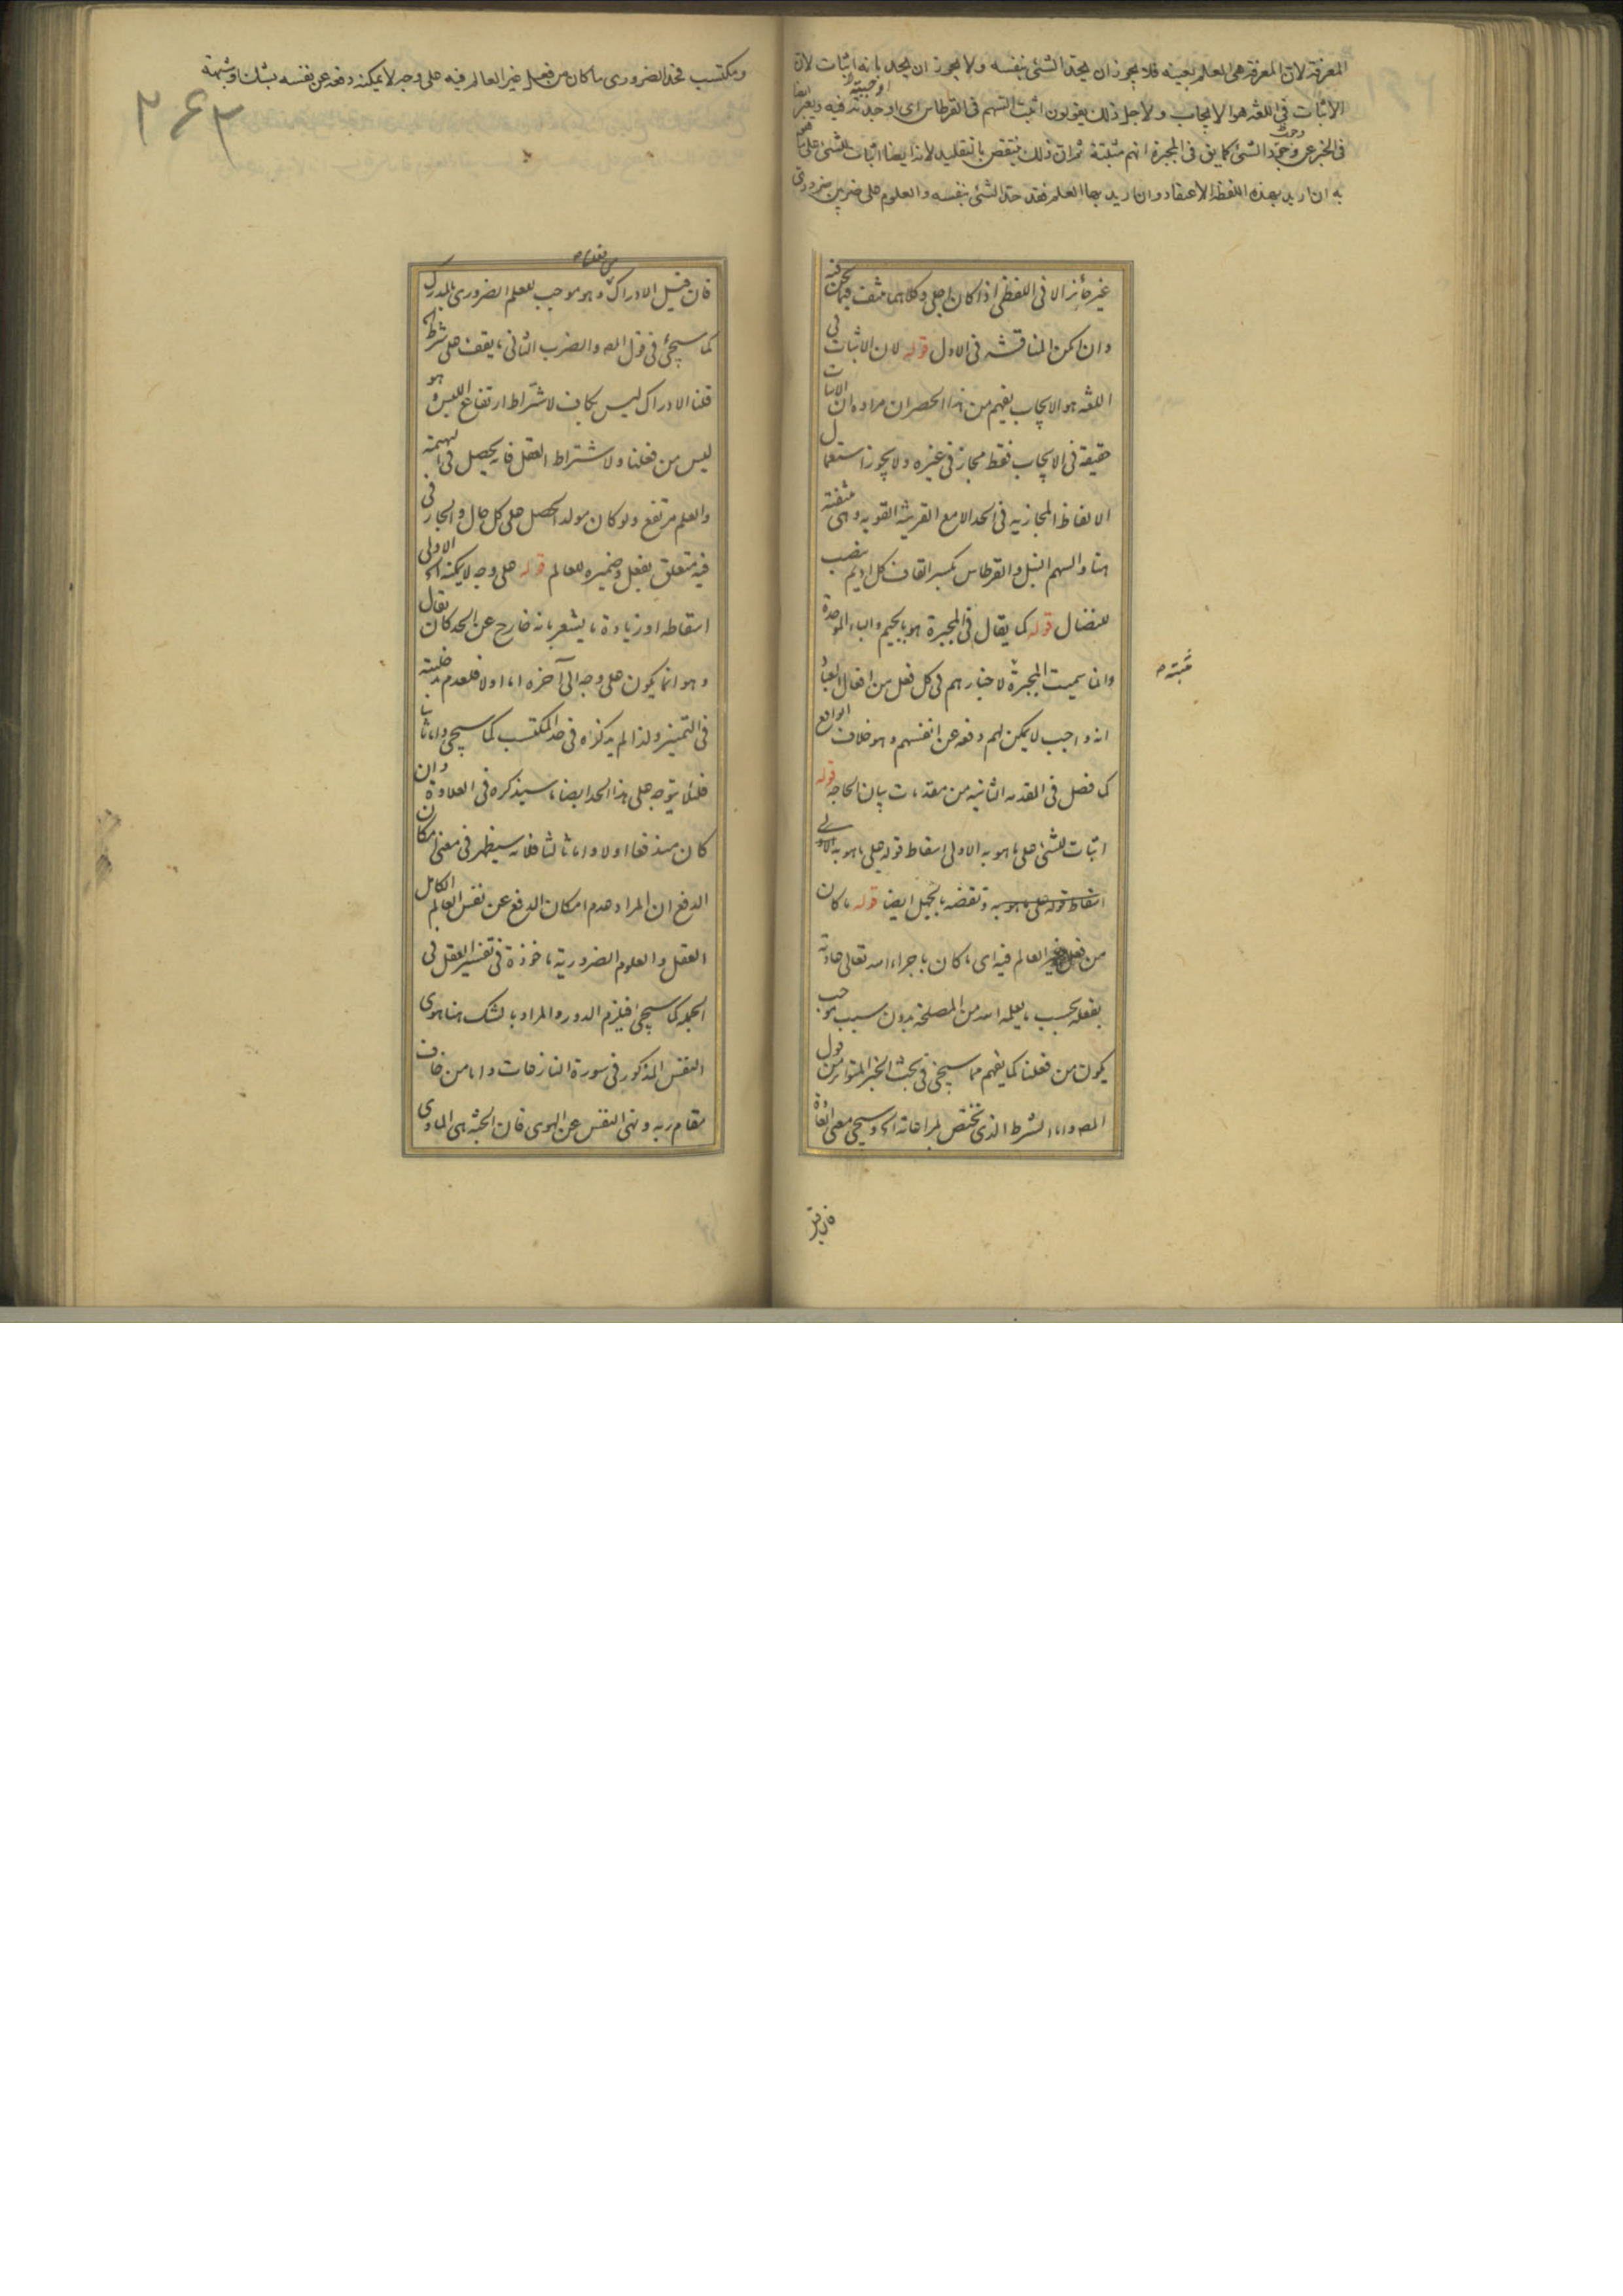 المعرفة لان المعرفة هى العلم بعينه فلا يجوز ان يحد الشئ بنفسه ولا يجوز ان يحد بانه اثبات لان
الاثبات فى اللغة هو الايجاب ولاجل ذلك يقولون اثبت السهم فى القرطاس اى اوجدته فيه ويعبر ايضا
فى الخبر عن وجود الشئ كما يق فى المجبرة انهم مثبتة ثم ان ذلك ينتقض بالتقليد لانه ايضا اثبات للشئ على ما هو
به ان اريد بهذه اللفظة الاعتقاد وان اريد بها العلم فقد حد الشئ بنفسه والعلوم على ضربين ضرورى
غير جائز الا فى اللفظى اذا كان اجلى وكلاهما منتف فيما نحن فيه
وان امكن المناقشه فى الاول قوله لان الاثبات فى
اللغه هو الايجاب يفهم من هذا الحصر ان مراده ان الاثبات
حقيقة فى الايجاب فقط مجاز فى غيره ولا يجوز استعمال
الالفاظ المجازيه فى الحد الا مع القرينة القويه وهى منتفية
هنا والسهم النبل والقرطاس بكسر القاف كل اديم ينصب
للنضال قوله كما يقال فى المجبرة هو بالجيم والباء الموحدة
وانما سميت المجبرة لاخبارهم فى كل فعل من افعال العباد
مثبتة
انه واجب لا يمكن لهم دفعه عن انفسهم وهو خلاف الواقع
كما فصل فى المقدمه الثانيه من مقدمات بيان الحاجه قوله
اثبات للشئ على ما هو به الاولى اسقاط قوله على ما هو به
اسقاط قوله على ما هو به ونقضه بالجهل ايضا قوله ما كان
من فعل غير العالم فيه اى ما كان باجراء الله تعالى عادته
بفعله بحسب ما يعلمه الله من المصلحة بدون سبب موجب
يكون من فعلنا كما يفهم مما سيجئ فى بحث الخبر المتواتر من قول
المص واما الشرط الذى يختص لمراعاته الخ وسيجئ معنى
فان قيل
ومكتسب فحد الضرورى ما كان من فعل غير العالم فيه على وجه لا يمكنه دفعه عن نفسه بشك او شبهة
٢٤٣
فان قيل الادراك وهو موجب للعلم الضرورى بالمدرك
كما سيجئ فى قول المص والضرب الثانى ما يقف على شرط
قلنا الادراك ليس بكاف لاشتراط ارتفاع اللبس وهو
ليس من فعلنا ولاشتراط العقل فانه يحصل فى البهيمة
والعلم مرتفع ولو كان مولدا لحصل على كل حال والجار فى
فيه متعلق بفعل وضميره للعالم قوله على وجه لا يمكنه الخ الاولى
اسقاطه او زيادة ما يشعر بانه خارج عن الحد كان يقال
وهو انما يكون على وجه الى آخره اما اولا فلعدم مدخليته
فى التمييز ولذا لم يذكره فى حد المكتسب كما سيجئ واما ثانيا
فلئلا يتوجه على هذا الحد ايضا ما سيذكره فى العلاوة وان
كان مندفعا اولا واما ثالثا فلانه سيظهر فى معنى امكان
الدفع ان المراد هدم امكان الدفع عن نفس العالم الكامل
العقل والعلوم الضرورية ماخوذة فى تفسير العقل فى
الجملة كما سيجئ فيلزم الدور والمراد بالشك هنا هوى
النفس المذكور فى سورة النازعات واما من خاف
مقام ربه ونهى النفس عن الهوى فان الجنة هى الماوى